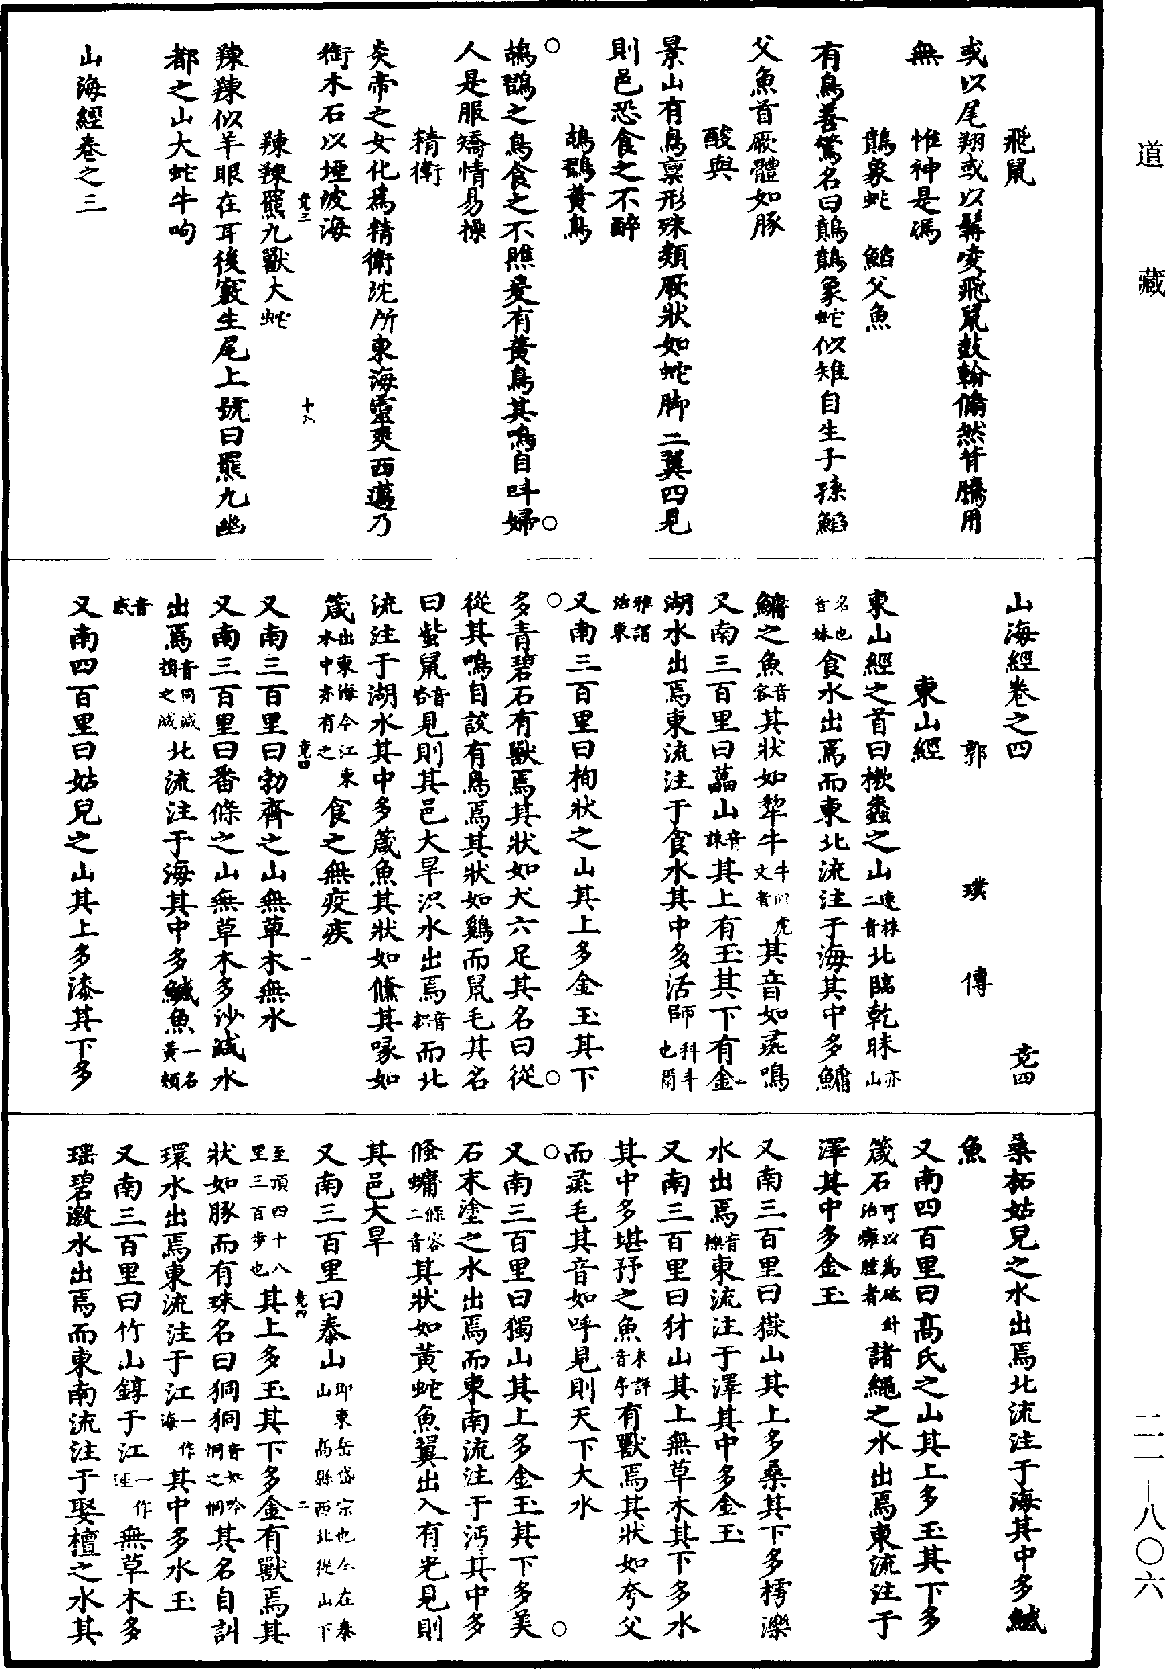 道藏
飛鼠
或以尾翔或以髯凌飛鼠鼓翰翛然背騰用
無　惟神是馮
鷾象蛇　鮯父魚
有鳥善驚名曰鷾鷾象蛇似雉自生子孫鮯
父魚首厥體如豚
酸與
景山有鳥稟形殊類厥狀如蛇脚二翼四見
則邑恐食之不醉
鴣䳼黃鳥
鴣䳼之鳥食之不瞧爰有黃鳥其鳴自叫婦
人是服矯情易操
精衛
炎帝之女化為精衛沈所東海靈爽西邁乃
銜木石以堙波海
辣辣羆九獸大蛇
辣辣似羊眼在耳後竅生尾上號曰羆九幽
都之山大蛇牛呴
山海經卷之三
山海經卷之四
郭璞傳
東山經
東山經之首曰樕䖝之山速株二音北臨乾昧亦山
名也音妹食水出焉而東北流注于海其中多鱅
鱅之魚音容其狀如犂牛牛似虎文者其音如彘鳴
又南三百里曰藟山音誄其上有玉其下有金
湖水出焉東流注于食水其中多活師科斗也爾
雅謂活東
又南三百里曰枸狀之山其上多金玉其下
多青碧石有獸焉其狀如犬六足其名曰從
從其鳴自詨有鳥焉其狀如鷄而鼠毛其名
曰蚩鼠音咨見則其邑大旱沢水出焉音枳而北
流注于湖水其中多箴魚其狀如儵其喙如
箴出東海今江東水中亦有之食之無疫疾
又南三百里曰勃齊之山無草木無水
又南三百里曰番條之山無草木多沙減水
出焉音同減損之減北流注于海其中多鱤魚一名黃頰
音感
又南四百里曰姑兒之山其上多漆其下多
桑柘姑兒之水出焉北流注于海其中多鱤
魚
又南四百里曰高氏之山其上多玉其下多
箴石可以為砭針治癰腫者諸繩之水出焉東流注于
澤其中多金玉
又南三百里曰嶽山其上多桑其下多樗濼
水出焉音櫟東流注于澤其中多金玉
又南三百里曰犲山其上無草木其下多水
其中多堪㐨之魚未詳音序有獸焉其狀如夸父
而彘毛其音如呼見則天下大水
又南三百里曰獨山其上多金玉其下多美
石末塗之水出焉而東南流注于沔其中多
偹䗤條容二音其狀如黃蛇魚翼出入有光見則
其邑大旱
又南三百里曰泰山即東岳岱宗也今在泰山高縣西北從山下
至頂四十八里三百步也其上多玉其下多金有獸焉其
狀如豚而有珠名曰狪狪音如吟恫之恫其名自訓
環水出焉東流注于江一作海其中多水玉
又南三百里曰竹山錞于江一作涯無草木多
瑶碧激水出焉而東南流注于娶檀之水其
二一—八〇六